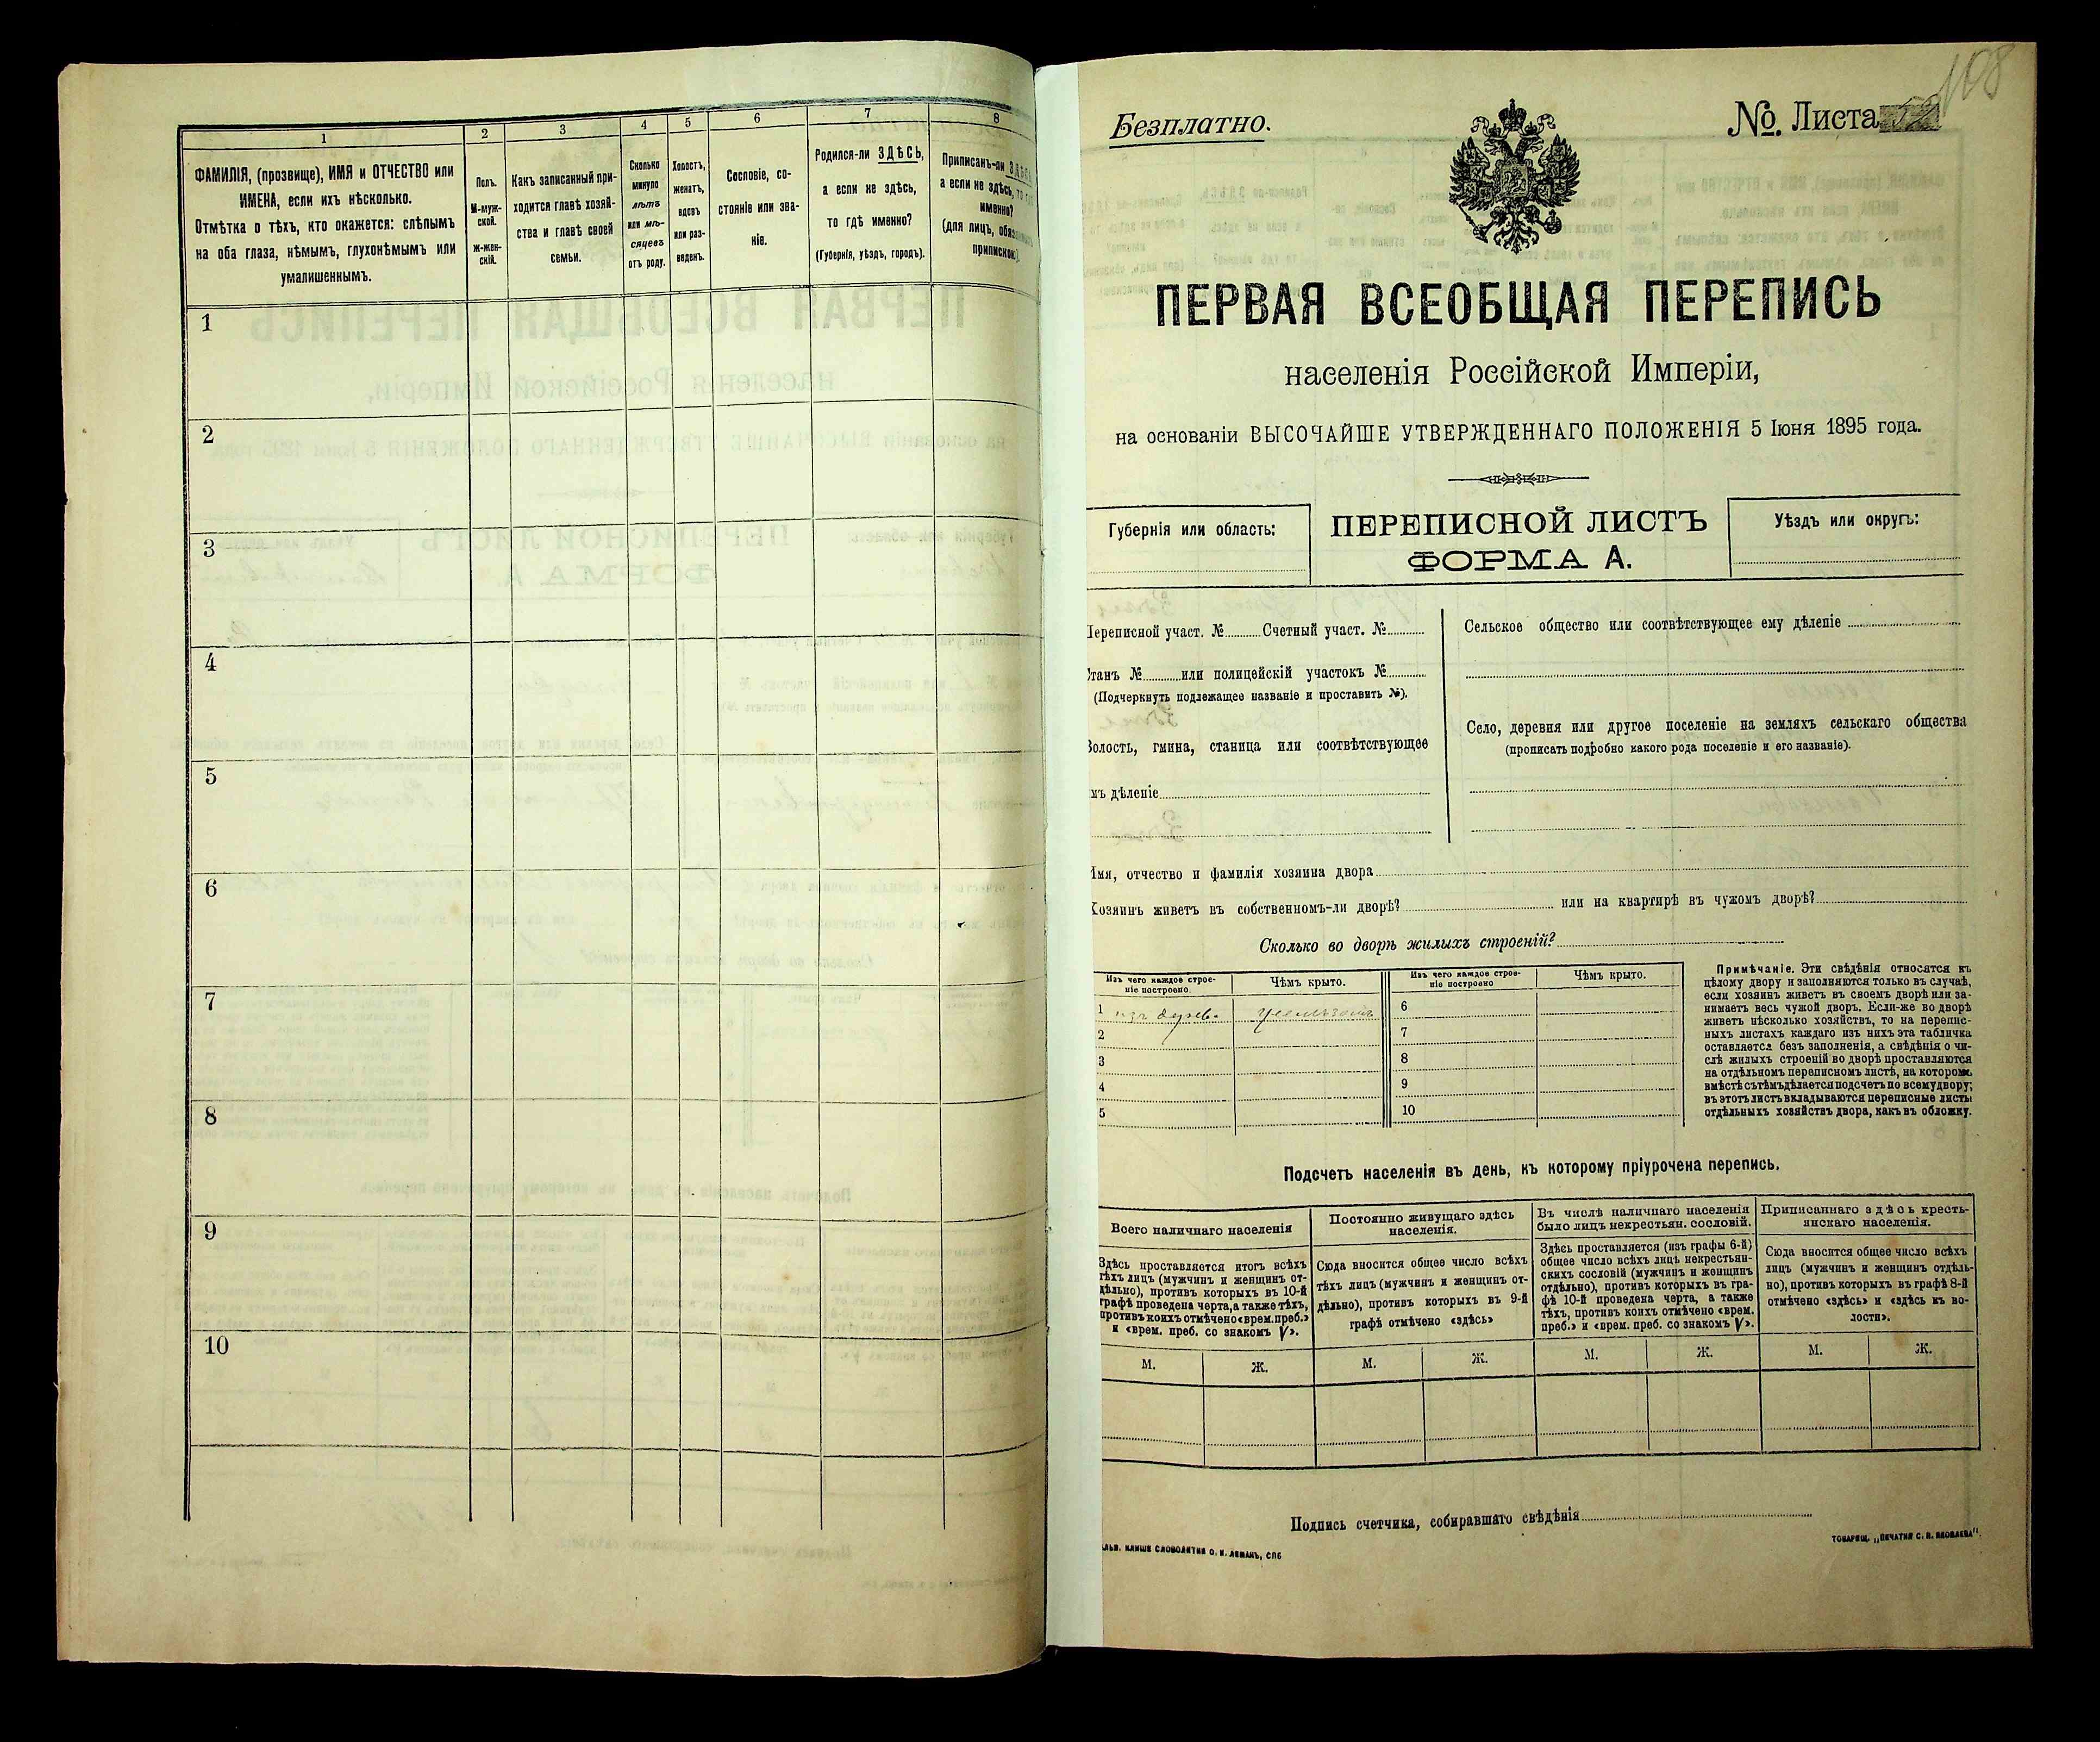 1
ФАМИЛІЯ, (прозвище), ИМЯ и ОТЧЕСТВО или
ИМЕНА, если ихъ нѣсколько.
Отмѣтка о тѣхъ, кто окажется: слѣпымъ
на оба глаза, нѣмымъ, глухонѣмымъ или
умалишеннымъ.
2
Полъ.
М-муж-
ской.
Ж-жен-
скій.
3
Какъ записанный при-
ходится главѣ хозяй-
ства и главѣ своей
семьи.
4
Сколько
минуло
лѣтъ
или мѣ-
сяцевъ
отъ роду.
5
Холостъ,
женатъ,
вдовъ
или раз-
веденъ.
6
Сословіе, со-
стояніе или зва-
ніе.
7
Родился-ли ЗДѢСЬ,
а если не здѣсь,
то гдѣ именно?
(Губернія, уѣздъ, городъ).
8
Приписанъ-ли ЗДѢСЬ,
а если не здѣсь, то гдѣ
именно?
(для лицъ, обязанныхъ
припискою).
1
2
3
4
5
6
7
8
9
10
108
Безплатно.
№. Листа
ПЕРВАЯ ВСЕОБЩАЯ ПЕРЕПИСЬ
населенія Россійской Имперіи,
на основаніи ВЫСОЧАЙШЕ УТВЕРЖДЕННАГО ПОЛОЖЕНІЯ 5 Іюня 1895 года.
Губернія или область:
ПЕРЕПИСНОЙ ЛИСТЪ
ФОРМА А.
Уѣздъ или округъ:
Переписной участ. № Счетный участ. №
Станъ № или полицейскій участокъ №
(Подчеркнуть подлежащее названіе и проставить №).
Волость, гмина, станица или соотвѣтствующее
имъ дѣленіе
Сельское общество или соотвѣтствующее ему дѣленіе
Село, деревня или другое поселеніе на земляхъ сельскаго общества
(прописать подробно какого рода поселеніе и его названіе).
Имя, отчество и фамилія хозяина двора
Хозяинъ живетъ въ собственномъ-ли дворѣ? или на квартирѣ въ чужомъ дворѣ?
Сколько во дворѣ жилыхъ строеній?
Изъ чего каждое строе-
ніе построено.
Чѣмъ крыто.
Изъ чего каждое строе-
ніе построено
Чѣмъ крыто.
1 изъ дерев.
2
3
4
5
6
7
8
9
10
Примѣчаніе. Эти свѣдѣнія относятся къ
цѣлому двору и заполняются только въ случаѣ,
если хозяинъ живетъ въ своемъ дворѣ или за-
нимаетъ весь чужой дворъ. Если-же во дворѣ
живетъ нѣсколько хозяйствъ, то на перепис-
ныхъ листахъ каждаго изъ нихъ эта табличка
оставляется безъ заполненія, а свѣдѣнія о чи-
слѣ жилыхъ строеній во дворѣ проставляются
на отдѣльномъ переписномъ листѣ, на которомъ
вмѣстѣ съ тѣмъ дѣлается подсчетъ по всему двору;
въ этотъ листъ вкладываются переписные листы
отдѣльныхъ хозяйствъ двора, какъ въ обложку.
Подсчетъ населенія въ день, къ которому пріурочена перепись.
Всего наличнаго населенія
Здѣсь проставляется итогъ всѣхъ
тѣхъ лицъ (мужчинъ и женщинъ от-
дѣльно), противъ которыхъ въ 10-й
графѣ проведена черта, а также тѣхъ,
противъ коихъ отмѣчено «врем. преб.»
и «врем. преб. со знакомъ V».
М. Ж.
Постоянно живущаго здѣсь
населенія.
Сюда вносится общее число всѣхъ
тѣхъ лицъ (мужчинъ и женщинъ от-
дѣльно), противъ которыхъ въ 9-й
графѣ отмѣчено «здѣсь»
М. Ж.
Въ числѣ наличнаго населенія
было лицъ некрестьян. сословій.
Здѣсь проставляется (изъ графы 6-й)
общее число всѣхъ лицъ некрестьян-
скихъ сословій (мужчинъ и женщинъ
отдѣльно), противъ которыхъ въ гра-
фѣ 10-й проведена черта, а также
тѣхъ, противъ коихъ отмѣчено «врем.
преб.» и «врем. преб. со знакомъ V».
М. Ж.
Приписаннаго здѣсь кресть-
янскаго населенія.
Сюда вносится общее число всѣхъ
лицъ (мужчинъ и женщинъ отдѣль-
но), противъ которыхъ въ графѣ 8-й
отмѣчено «здѣсь» и «здѣсь къ во-
лости».
М. Ж.
Подпись счетчика, собиравшаго свѣдѣнія
КЛИШЕ СЛОВОЛИТНИ О. И. ЛЕМАНЪ, СПБ
ТОВАРИЩ. „ПЕЧАТНЯ С. П. ЯКОВЛЕВА“.